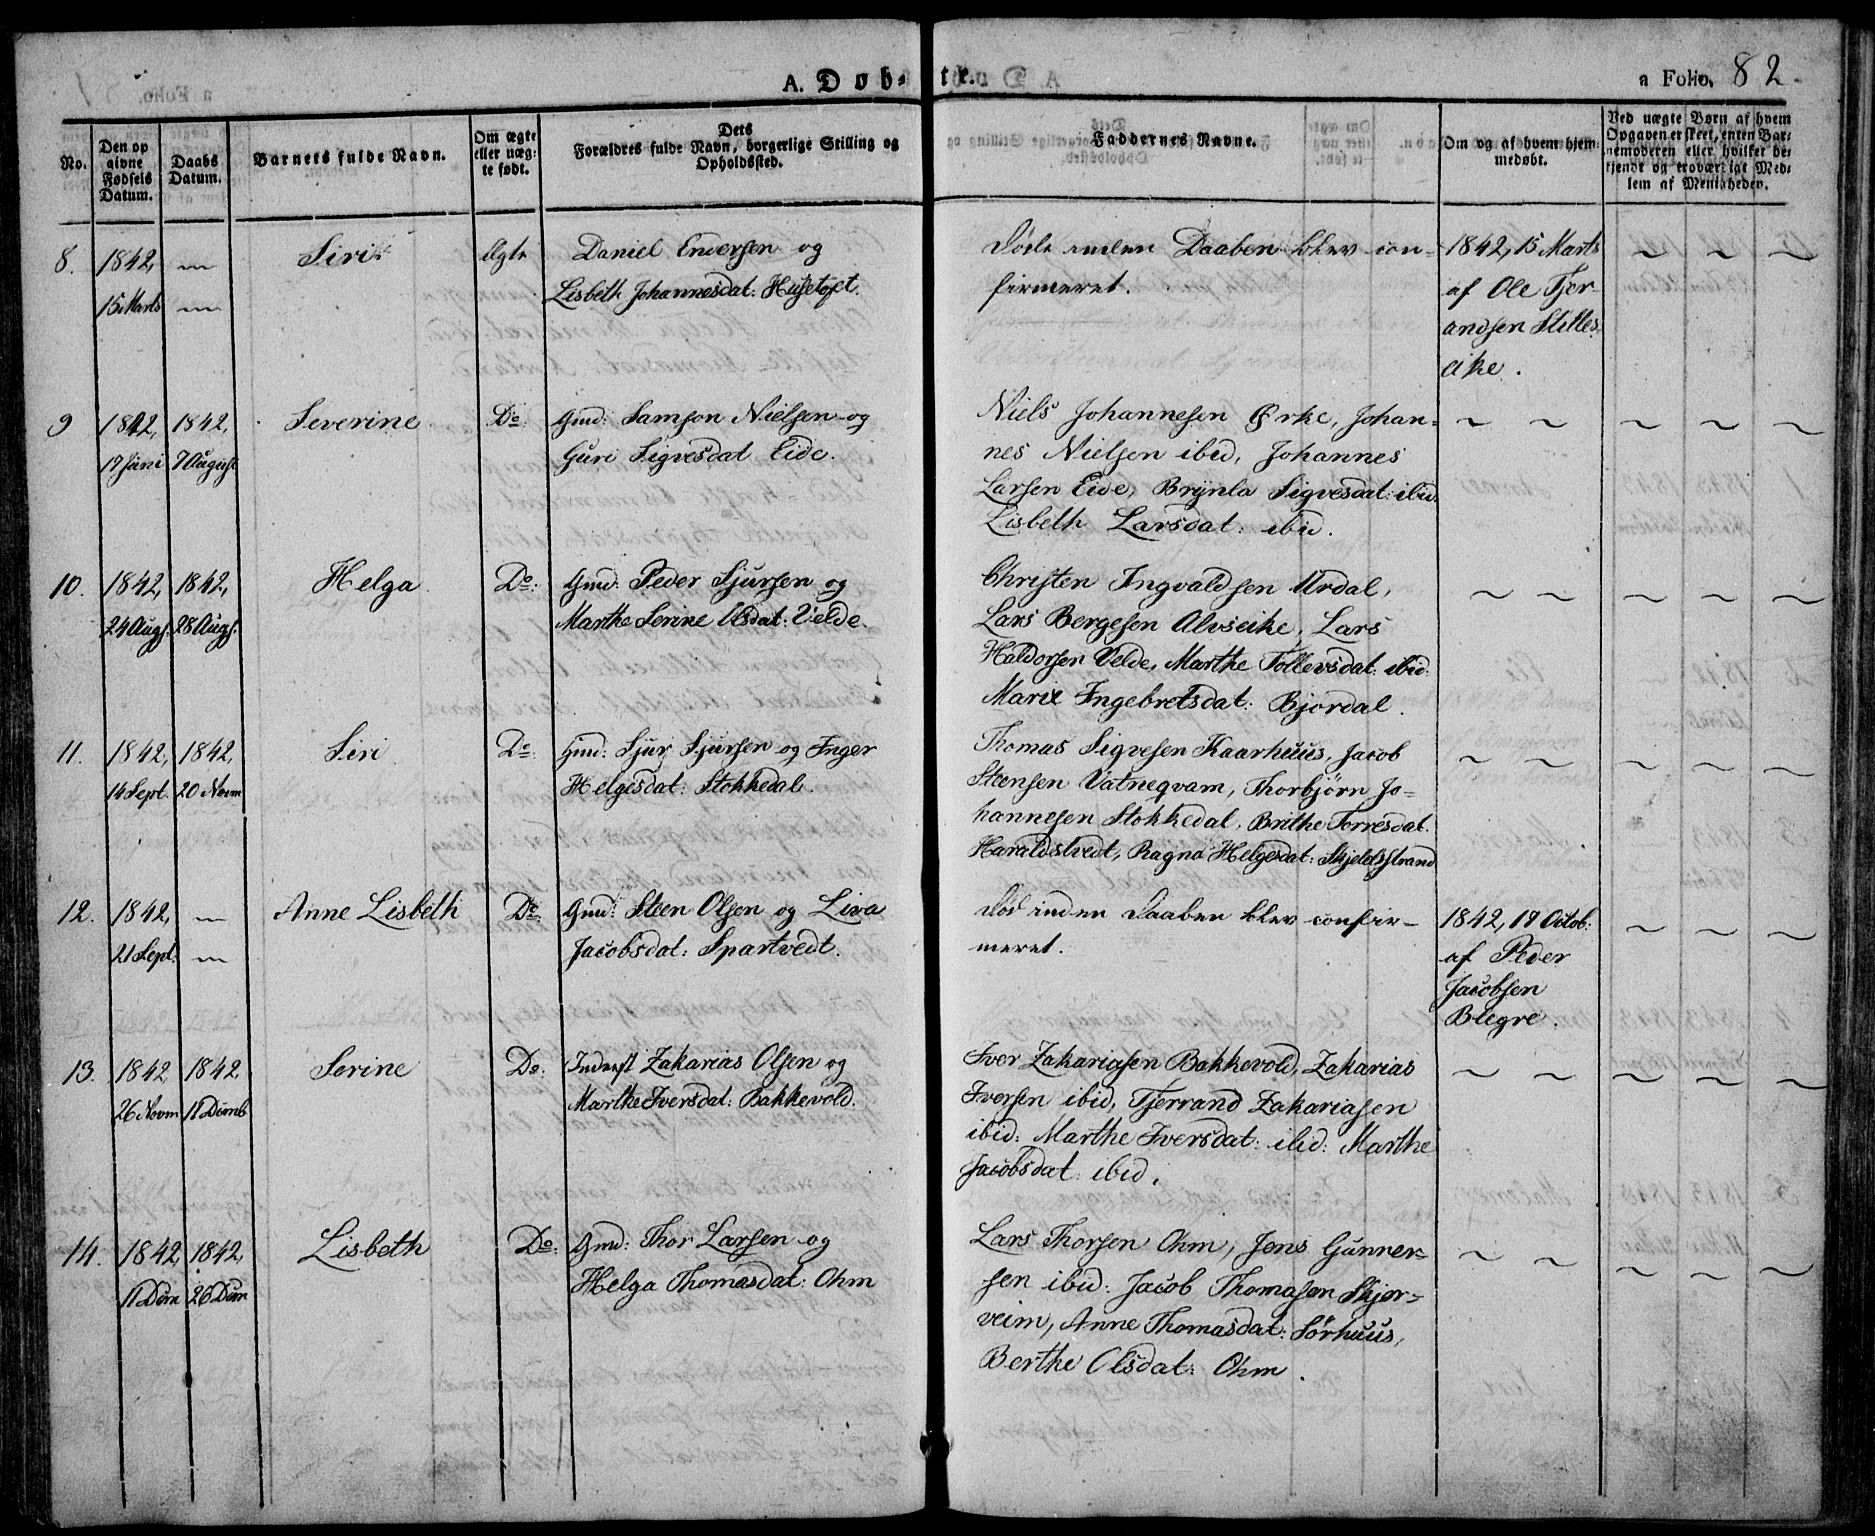 A. Døb-
te.
a Folio. 82.
No.
Den op
givne
Fødsels
Datum.
Daabs
Datum.
Barnets fulde Navn.
Om ægte
eller uæg-
te født.
Dets
Forældres fulde Navn, borgerlige Stilling og
Opholdssted.
Faddernes Navne.
Om og af hvem hjem-
medøbt.
Ved uægte Børn af hvem
Opgaven er skeet, enten Bar-
nemoderen eller hvilket be-
kjendt og troværdigt Med-
lem af Menigheden.
8.
1842,
15 Marts
Siri
Ægte
Daniel Endersen og
Lisbeth Johannesdat: Husetøft.
Døde inden Daaben blev con-
firmeret.
1842, 15 Marts
af Ole Tjer-
andsen Stilles-
eike.
9
1842,
17 Juni
1842,
7 August
Severine
Do
Gmd: Samson Nielsen og
Guri Sigvesdat Eide.
Niels Johannesen Ørke, Johan-
nes Nielsen ibid, Johannes
Larsen Eide, Brynla Sigvesdat: ibid
Lisbeth Larsdat: ibid.
10.
1842,
24 Augs.
1842,
28 Augs.
Helga
Do:
Gmd: Peder Sjursen og
Marthe Serine Olsdat: Velde.
Christen Ingvaldsen Urdal,
Lars Bergesen Alvseike, Lars
Haldorsen Velde, Marthe Tollevsdat: ibid:
Marie Ingebretsdat: Bjordal.
11.
1842,
14 Sept.
1842,
20 Novm
Siri
Do:
Gmd: Sjur Sjursen og Inger
Helgesdat: Stokkedal.
Thomas Sigvesen Kaarhuus, Jacob
Steensen Vatneqvam, Thorbjørn Jo-
hannesen Stokkedal, Brithe Torresdat.
Haraldstvedt, Ragna Helgesdat: Skjeldsstrand
12.
1842,
21 Sept.
Anne Lisbeth
Do:
Gmd: Steen Olsen og Liva
Jacobsdat: Spartvedt.
Død inden Daaben blev confir-
meret.
1842, 19 Octob:
af Peder
Jacobsen
Blegre.
13.
1842
26 Novm
1842
11 Dcmb
Serine
Do:
Inderst Zakarias Olsen og
Marthe Iversdat: Bakkevold.
Iver Zakariasen Bakkevold, Zakarias
Iversen ibid, Tjerrand Zakariasen
ibid: Marthe Iversdat: ibid: Marthe
Jacobsdat: ibid.
14.
1842,
11 Dcm
1842,
26 Dcm
Lisbeth
Do:
Gmd: Thor Larsen og
Helga Thomasdat: Ohm
Lars Thorsen Ohm, Jens Gunner-
sen ibid: Jacob Thomasen Skjer-
veim, Anne Thomasdat: Sørhuus,
Berthe Olsdat: Ohm.